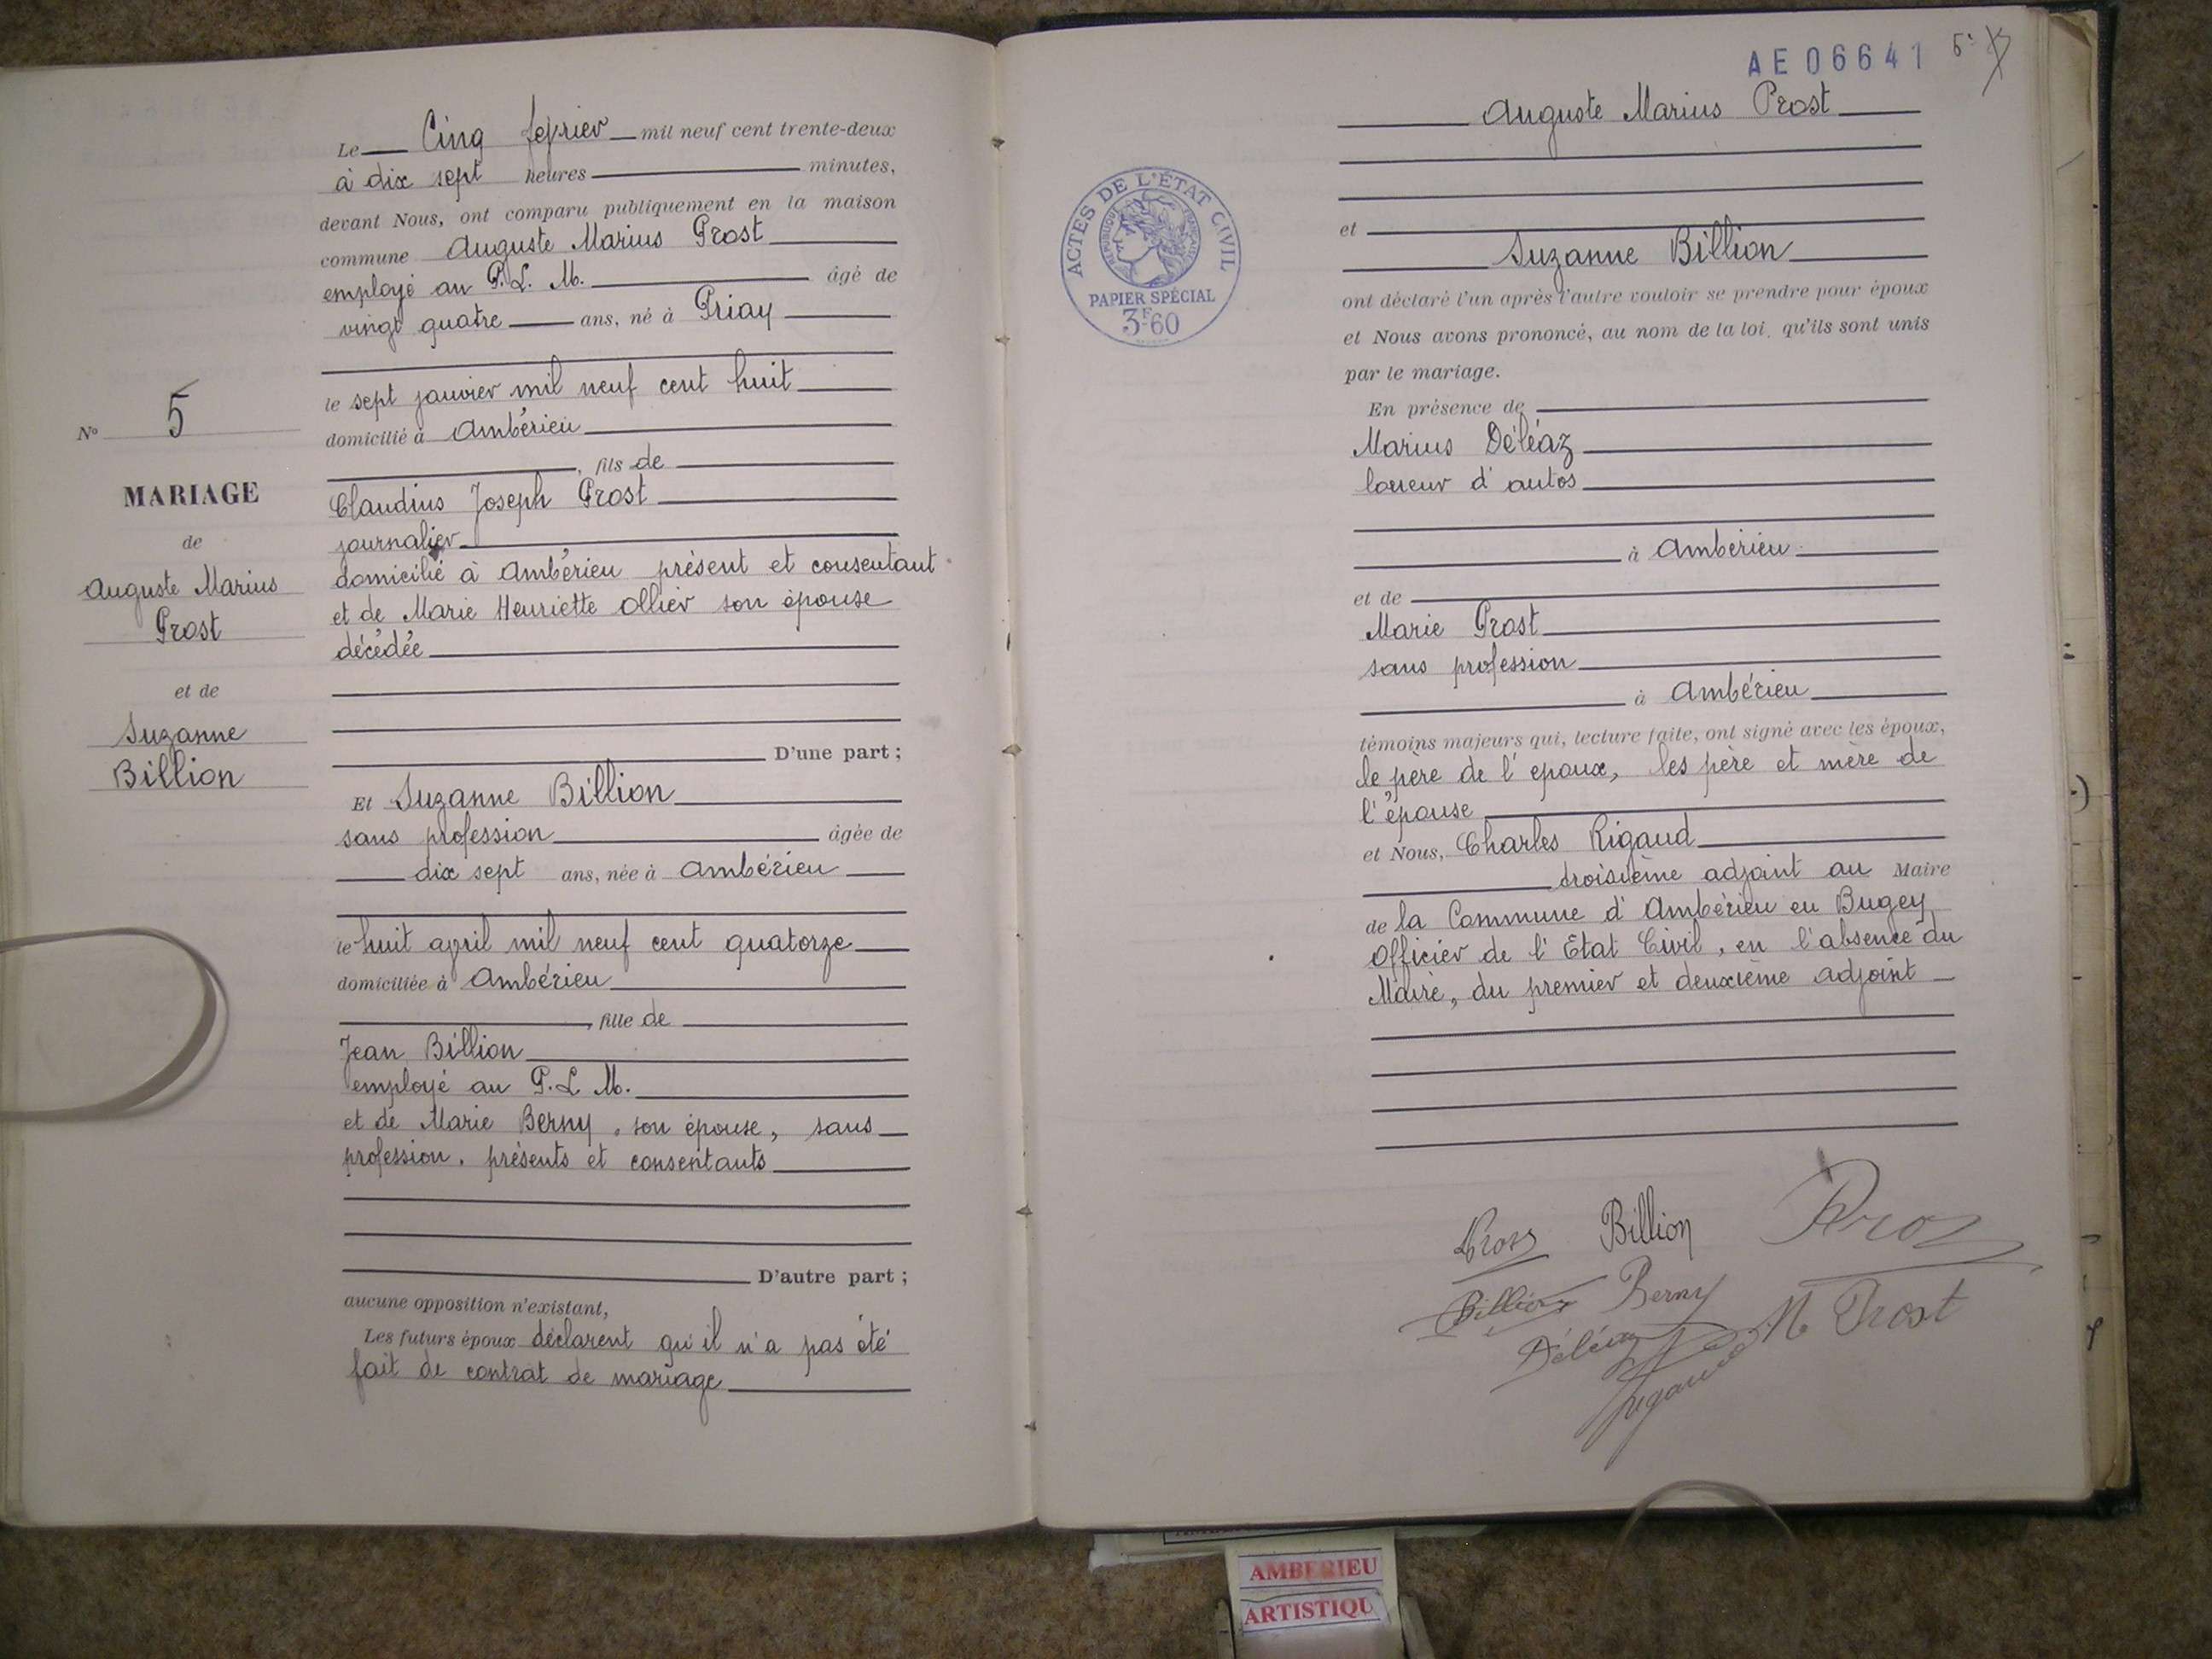 Le Cinq février mil neuf cent trente-deux
à dix sept heures minutes,
devant Nous, ont comparu publiquement en la maison
commune Auguste Marius Prost
employé au P.L.M. âgé de
vingt quatre ans, né à Priay
le sept janvier mil neuf cent huit
domicilié à Ambérieu
, fils de
Claudius Joseph Prost
journalier
domicilié à Ambérieu présent et consentant
et de Marie Henriette Ollier son épouse
décédée
D'une part ;
Et Suzanne Billion
sans profession âgée de
dix sept ans, née à Ambérieu
le huit avril mil neuf cent quatorze
domiciliée à Ambérieu
, fille de
Jean Billion
employé au P.L M.
et de Marie Berny, son épouse, sans
profession. présents et consentants
D'autre part ;
aucune opposition n'existant,
Les futurs époux déclarent qu'il n'a pas été
fait de contrat de mariage
No 5
MARIAGE
de
Auguste Marius
Prost
et de
Suzanne
Billion
AE06641
Auguste Marius Prost
et
Suzanne Billion
ont déclaré l'un après l'autre vouloir se prendre pour époux
et Nous avons prononcé, au nom de la loi, qu'ils sont unis
par le mariage.
En présence de
Marius Déléaz
loueur d'autos
à Ambérieu
et de
Marie Prost
sans profession
à Ambérieu
témoins majeurs qui, lecture faite, ont signé avec les époux,
le père de l'epoux, les père et mère de
l'épouse
et Nous, Charles Rigaud
troisième adjoint au Maire
de la Commune d'Ambérieu en Bugey
Officier de l'Etat Civil, en l'absence du
Maire, du premier et deuxième adjoint
Prost Billion Prost
Billion Berny
Déléaz M Prost
Rigaud
ACTES DE L'ÉTAT CIVIL
RÉPUBLIQUE FRANÇAISE
PAPIER SPÉCIAL
3F60
AMBERIEU
ARTISTIQU